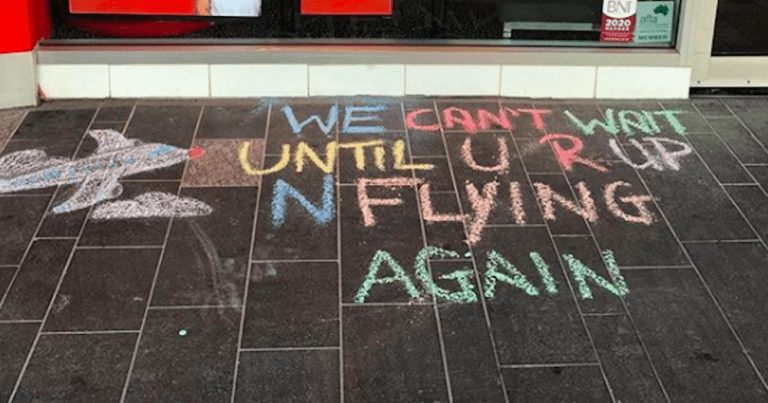 BNI
2020
MEMBER
WE CAN'T WAIT
UNTIL U R UP
N FLYING
AGAIN